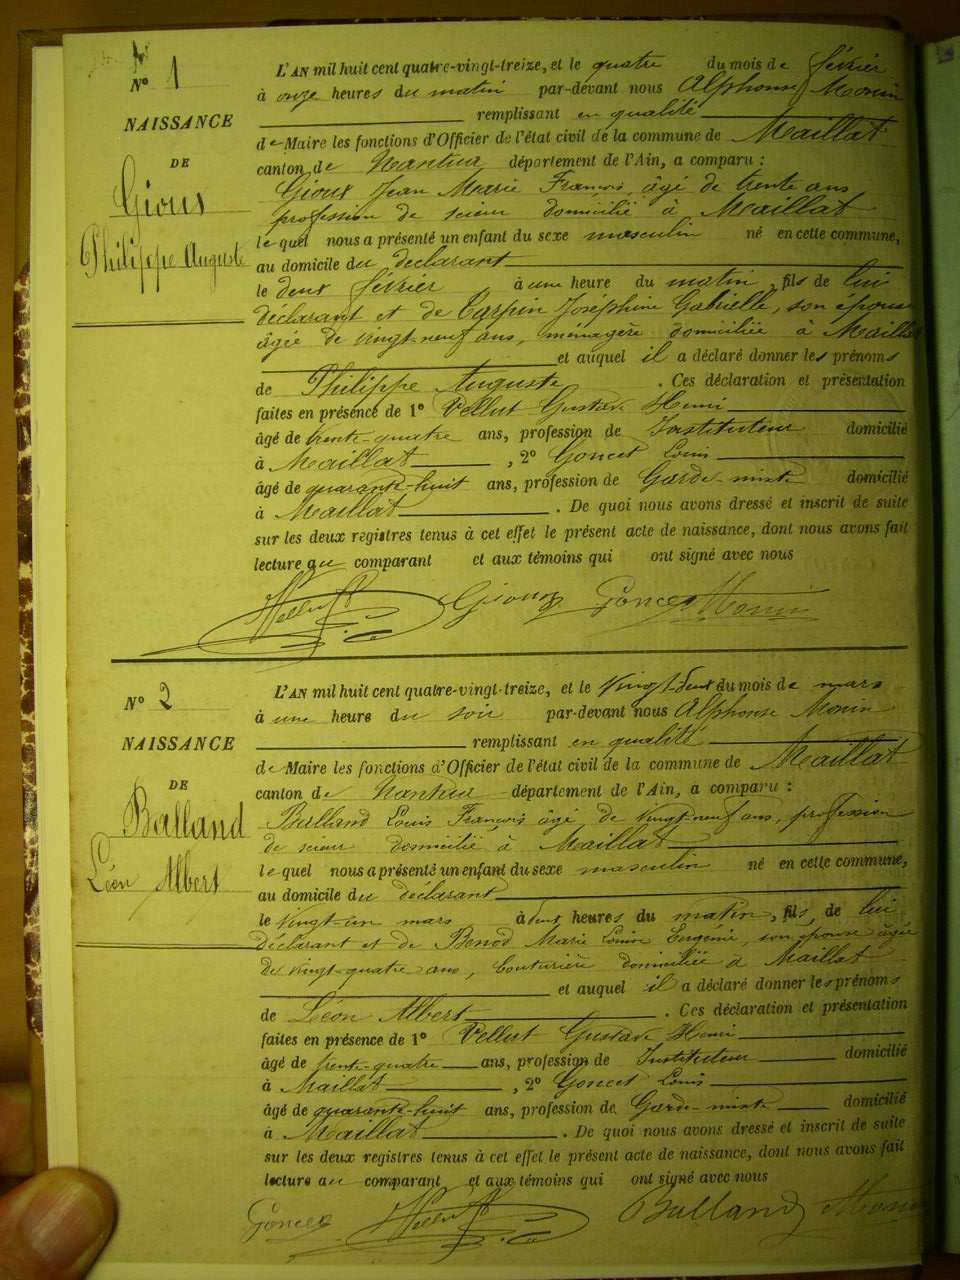 N° 1
NAISSANCE
DE
Gioux
Philippe Auguste
L'AN mil huit cent quatre-vingt-treize, et le quatre du mois de février
à onze heures du matin par-devant nous Alphonse Monin
remplissant en qualité
de Maire les fonctions d'Officier de l'état civil de la commune de Maillat
canton de Nantua département de l'Ain, a comparu :
Gioux Jean Marie François, âgé de trente ans
profession de scieur domicilié à Maillat
lequel nous a présenté un enfant du sexe masculin né en cette commune,
au domicile du déclarant
le deux février à une heure du matin, fils de lui
déclarant et de Carpin Joséphine Gabrielle, son épouse
âgée de vingt-neuf ans, ménagère domiciliée à Maillat
et auquel il a déclaré donner les prénoms
de Philippe Auguste . Ces déclaration et présentation
faites en présence de 1° Vellut Gustave Henri
âgé de trente-quatre ans, profession de Instituteur domicilié
à Maillat , 2° Goncet Louis
âgé de quarante-huit ans, profession de Garde-mixte domicilié
à Maillat . De quoi nous avons dressé et inscrit de suite
sur les deux registres tenus à cet effet le présent acte de naissance, dont nous avons fait
lecture au comparant et aux témoins qui ont signé avec nous
Vellut Gioux Goncet Monin
N° 2
NAISSANCE
DE
Balland
Léon Albert
L'AN mil huit cent quatre-vingt-treize, et le vingt-deux du mois de mars
à une heure du soir par-devant nous Alphonse Monin
remplissant en qualité
de Maire les fonctions d'Officier de l'état civil de la commune de Maillat
canton de Nantua département de l'Ain, a comparu :
Balland Louis François âgé de vingt-neuf ans, profession
de scieur domicilié à Maillat
lequel nous a présenté un enfant du sexe masculin né en cette commune,
au domicile du déclarant
le vingt-un mars à deux heures du matin, fils de lui
déclarant et de Benod Marie Louise Eugénie, son épouse âgée
de vingt-quatre ans, couturière domiciliée à Maillat
et auquel il a déclaré donner les prénoms
de Léon Albert . Ces déclaration et présentation
faites en présence de 1° Vellut Gustave Henri
âgé de trente-quatre ans, profession de Instituteur domicilié
à Maillat , 2° Goncet Louis
âgé de quarante-huit ans, profession de Garde-mixte domicilié
à Maillat . De quoi nous avons dressé et inscrit de suite
sur les deux registres tenus à cet effet le présent acte de naissance, dont nous avons fait
lecture au comparant et aux témoins qui ont signé avec nous
Goncet Vellut Balland Monin